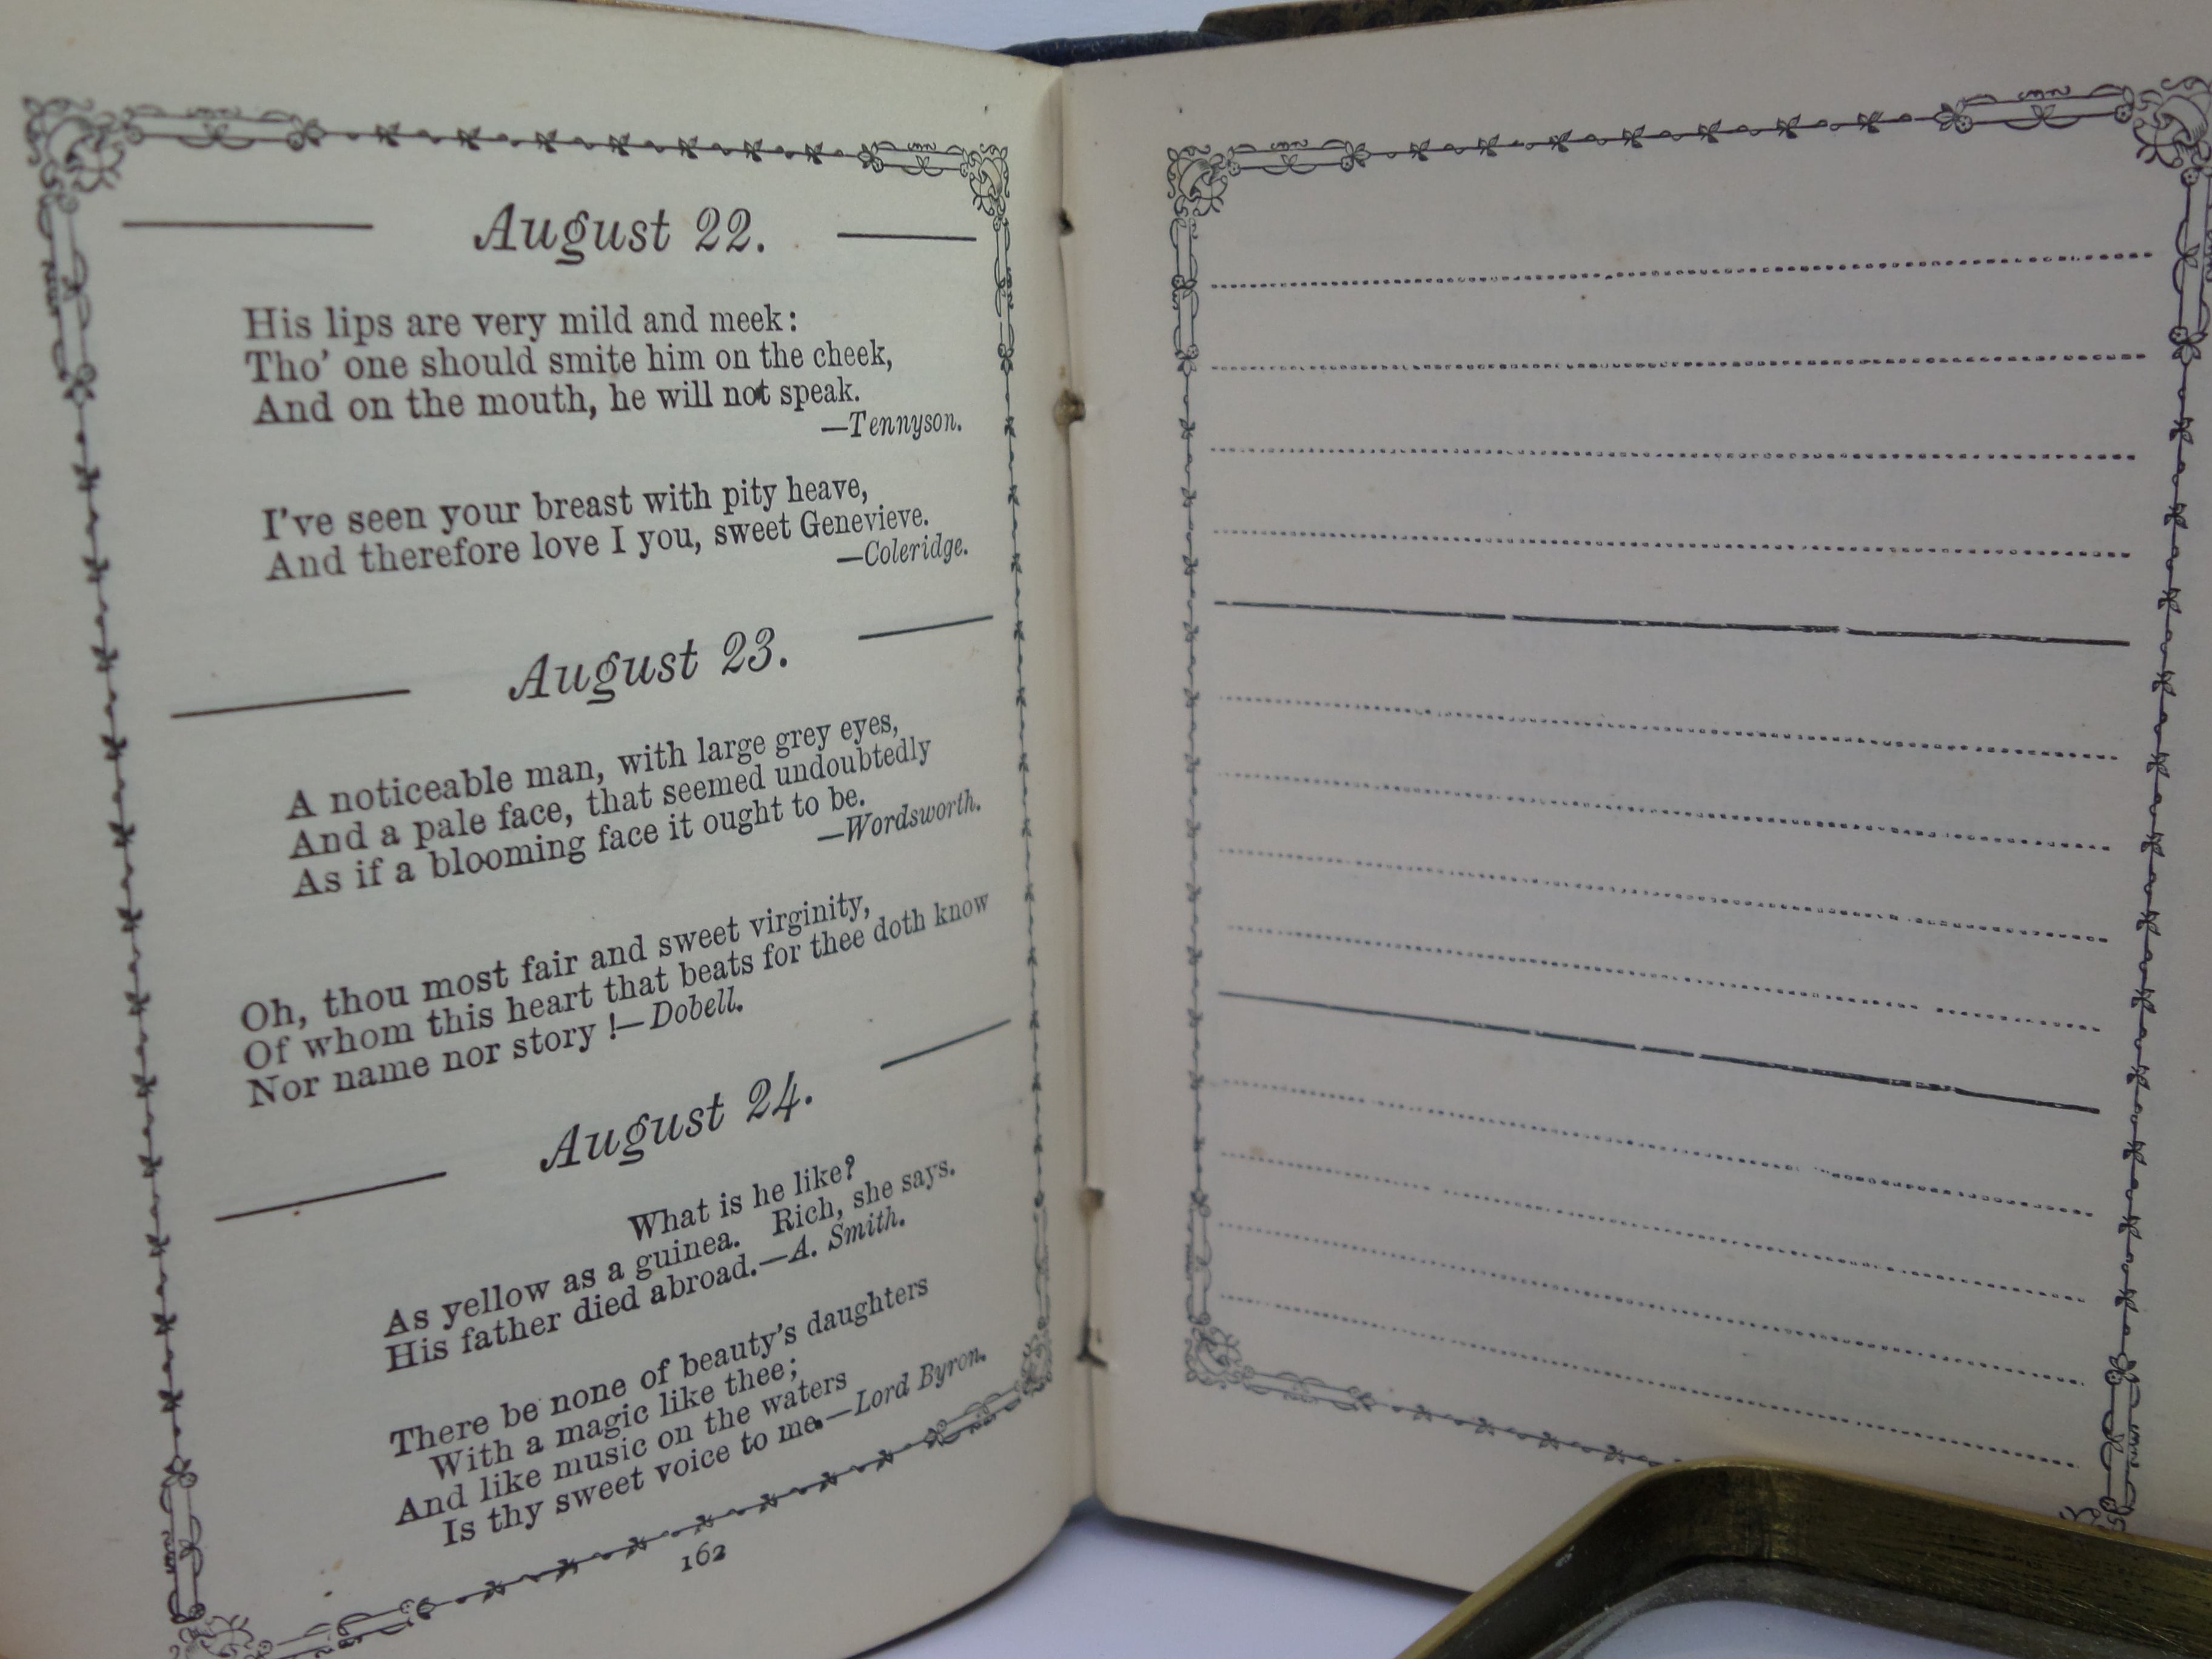 August 22.
His lips are very mild and meek:
Tho' one should smite him on the cheek,
And on the mouth, he will not speak.
—Tennyson.
I've seen your breast with pity heave,
And therefore love I you, sweet Genevieve.
—Coleridge.
August 23.
A noticeable man, with large grey eyes,
And a pale face, that seemed undoubtedly
As if a blooming face it ought to be.
—Wordsworth.
Oh, thou most fair and sweet virginity,
Of whom this heart that beats for thee doth know
Nor name nor story !—Dobell.
August 24.
What is he like?
As yellow as a guinea. Rich, she says.
His father died abroad.—A. Smith.
There be none of beauty's daughters
With a magic like thee;
And like music on the waters
Is thy sweet voice to me.—Lord Byron.
162